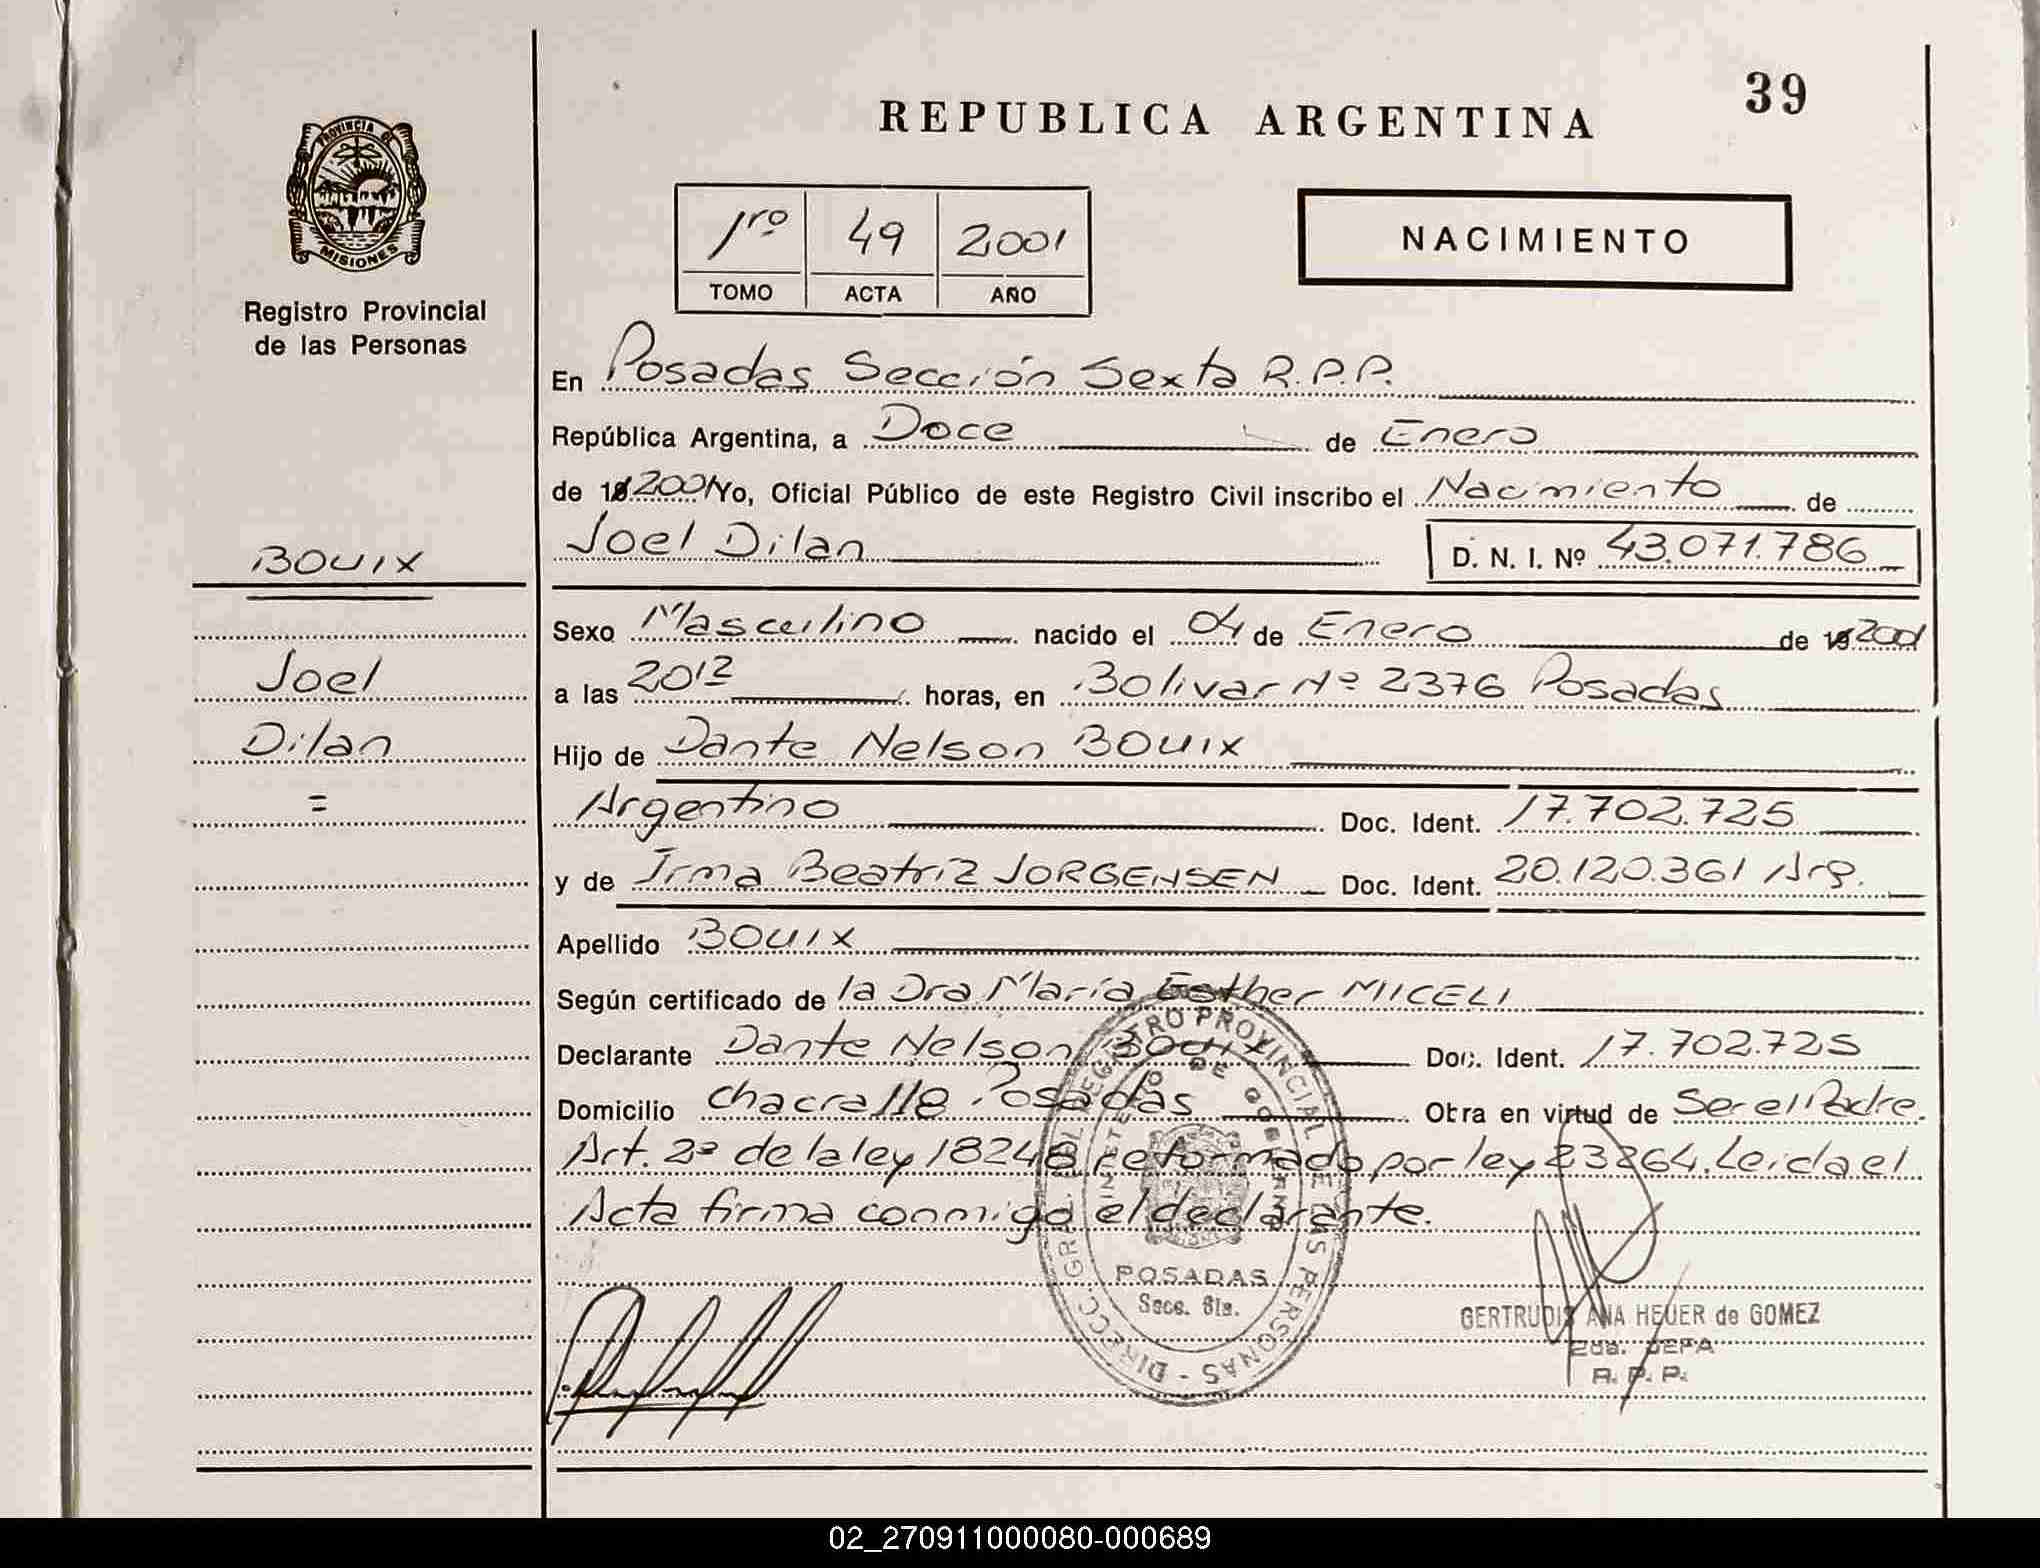 39
REPUBLICA ARGENTINA
PROVINCIA DE
MISIONES
Registro Provincial
de las Personas
1ro 49 2001
TOMO ACTA AÑO
NACIMIENTO
En Posadas Sección Sexta R.P.P.
República Argentina, a Doce de Enero
de 19 2001 Yo, Oficial Público de este Registro Civil inscribo el Nacimiento de
Joel Dilan D. N. I. Nº 43.071.786
BOUIX
Joel
Dilan
=
Sexo Masculino nacido el 04 de Enero de 19 2001
a las 2012 horas, en Bolivar Nº 2376 Posadas
Hijo de Dante Nelson BOUIX
Argentino Doc. Ident. 17.702.725
y de Irma Beatriz JORGENSEN Doc. Ident. 20.120.361 Arg.
Apellido BOUIX
Según certificado de la Dra María Esther MICELI
Declarante Dante Nelson BOUIX Doc. Ident. 17.702.725
Domicilio Chacra 118 Posadas Obra en virtud de Ser el Padre.
Art. 2º de la ley 18248 reformado por ley 23264. Leida el
Acta firma conmigo el declarante.
DIRECC. GRAL. DEL REGISTRO PROVINCIAL DE LAS PERSONAS
POSADAS
Secc. 6ta.
GERTRUDIS ANA HEUER de GOMEZ
2da. JEFA
R. P. P.
02_270911000080-000689